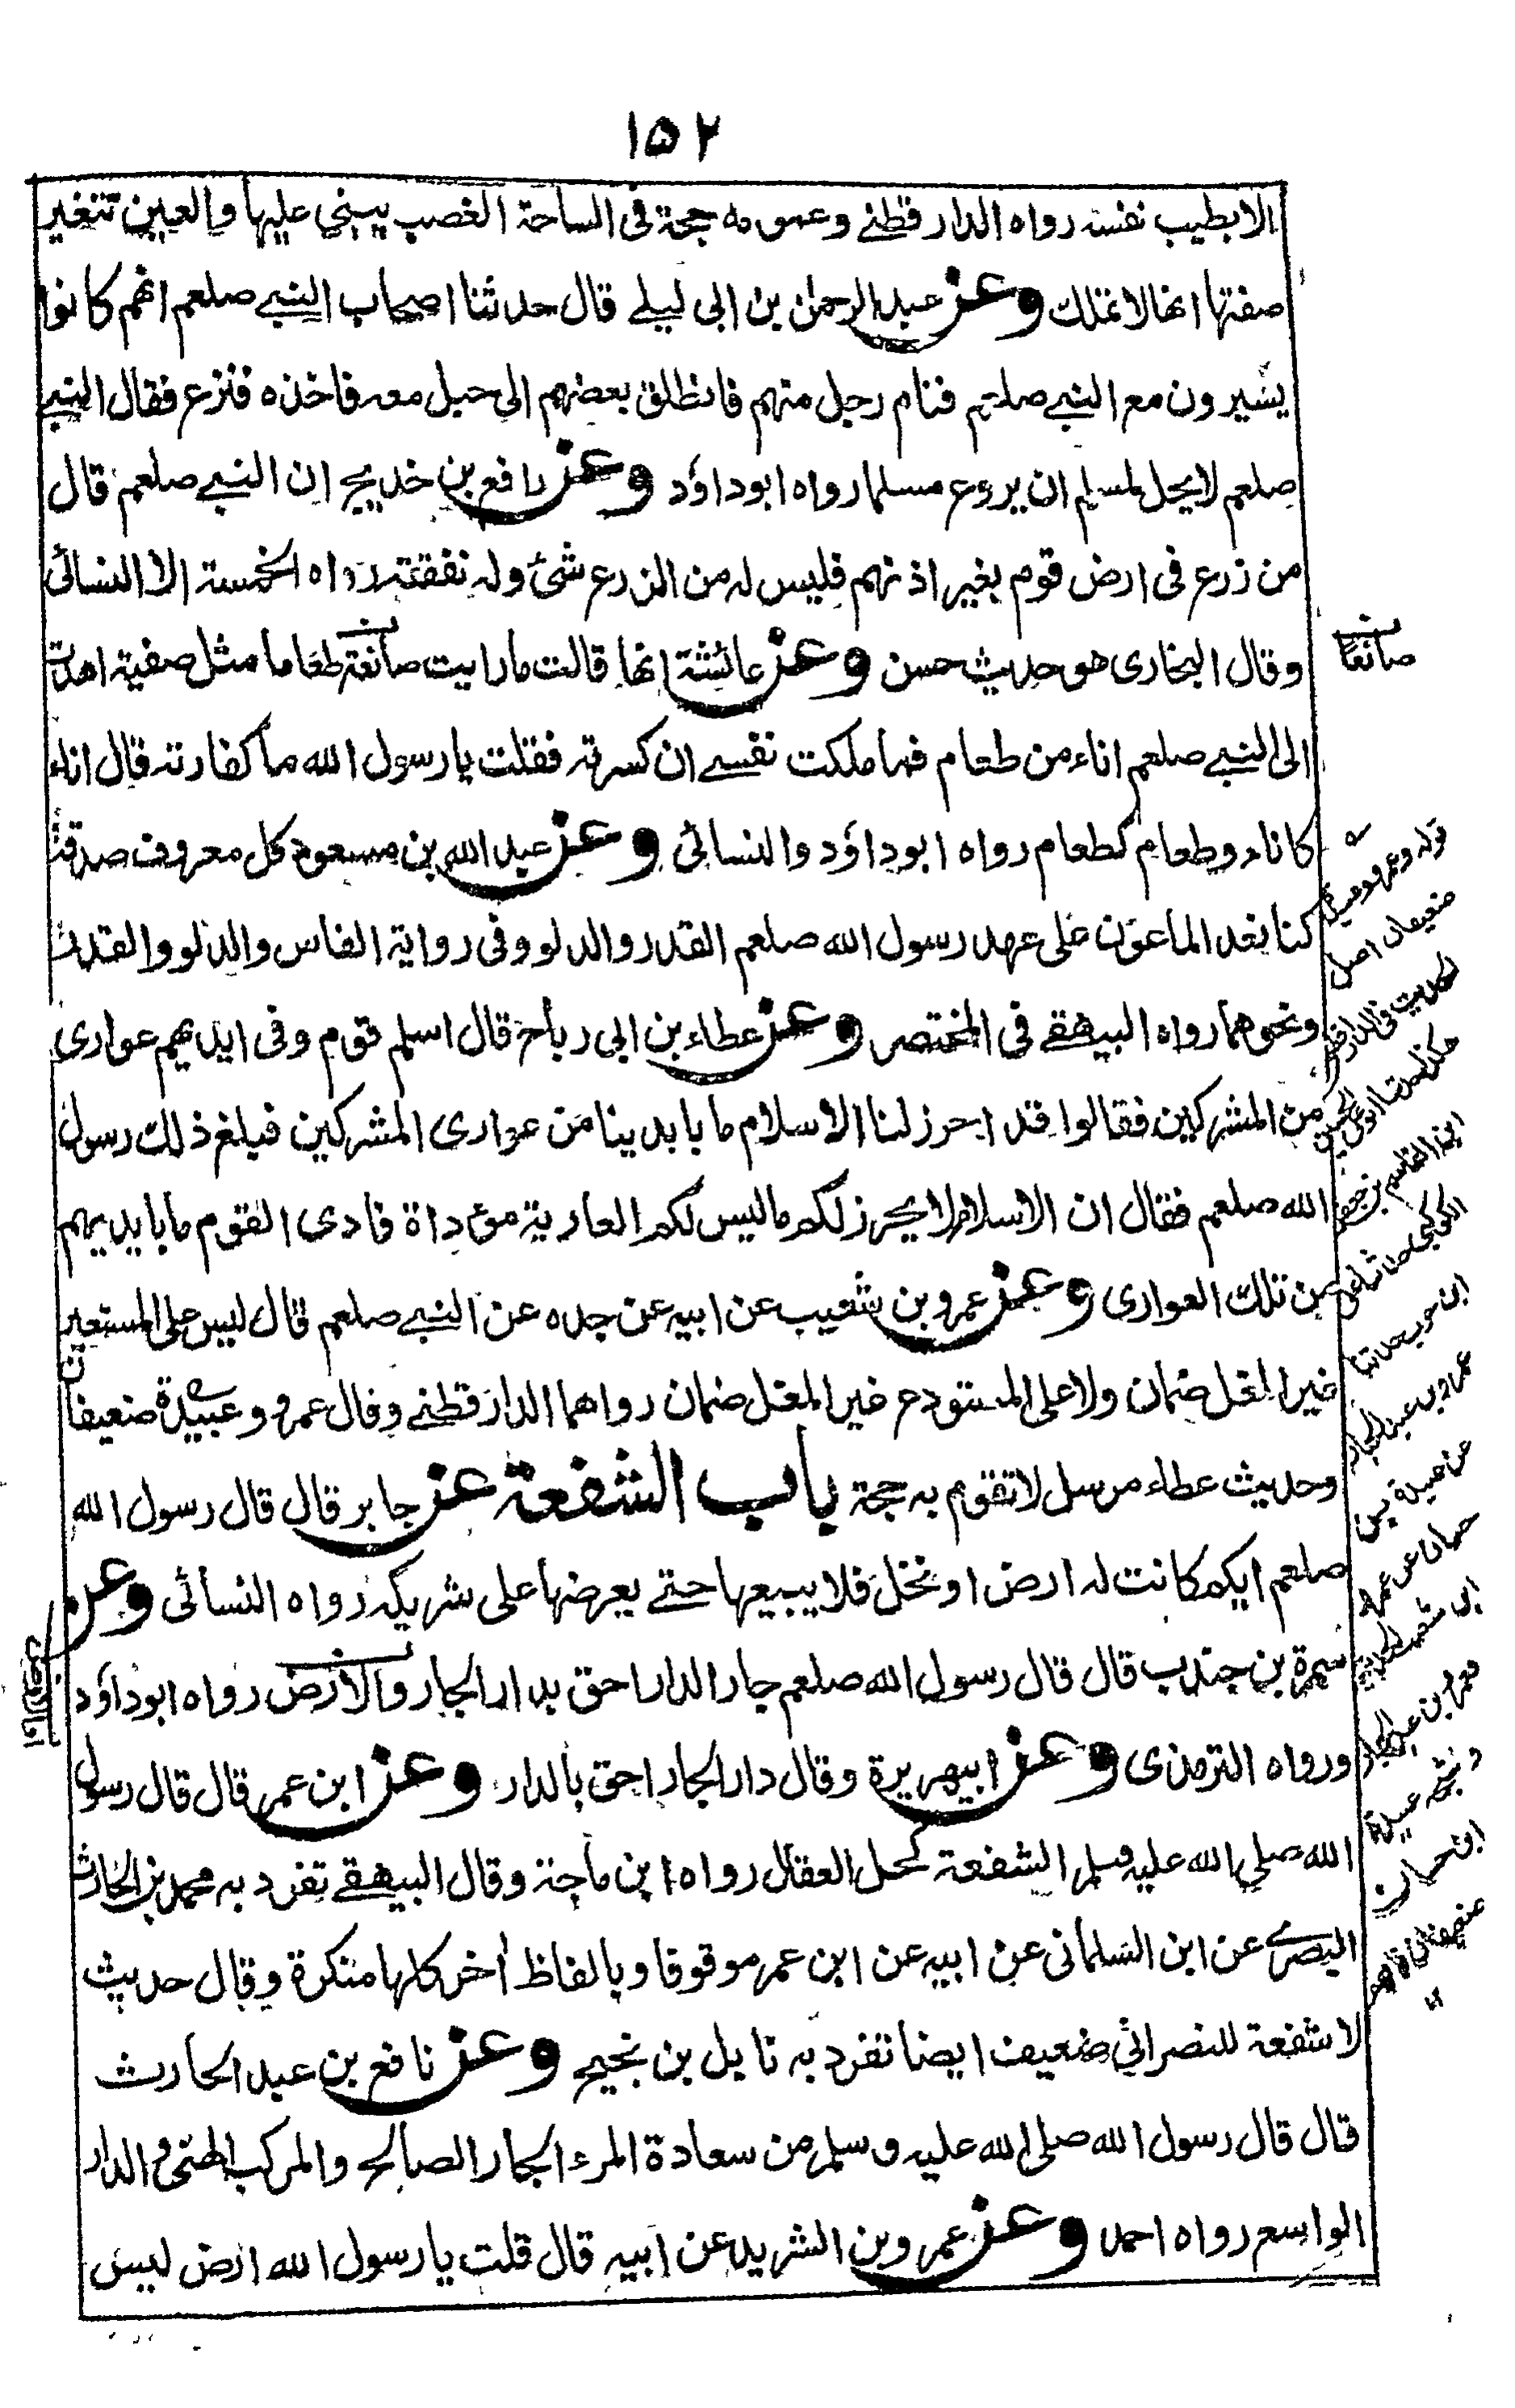 ١٥٢
الا بطيب نفسه رواه الدارقطنے وعمومه حجة فى الساحة الغصب يبنى عليها والعين تتغير
صفتها انها لا تملك وعن عبد الرحمن بن ابى ليلے قال حدثنا اصحاب النبے صلعم انهم كانوا
يسيرون مع النبے صلعم فنام رجل منهم فانطلق بعضهم الى حبل معه فاخذه ففزع فقال النبے
صلعم لا يحل لمسلم ان يروع مسلما رواه ابوداؤد وعن رافع بن خديج ان النبے صلعم قال
من زرع فى ارض قوم بغير اذنهم فليس له من الزرع شئ وله نفقته رواه الخمسة الا النسائى
وقال البخارى هو حديث حسن وعن عائشة انها قالت ما رايت صانعة طعاما مثل صفية اهدت
صانعًا
الى النبے صلعم اناء من طعام فما ملكت نفسے ان كسرته فقلت يا رسول الله ما كفارته قال اناء
كاناء وطعام كطعام رواه ابوداؤد والنسائى وعن عبد الله بن مسعود كل معروف صدقة
كنا نعد الماعون على عهد رسول الله صلعم القدر والدلو وفى رواية الفاس والدلو والقدر
ونحوهما رواه البيهقے فى المختصر وعن عطاء بن ابى رباح قال اسلم قوم وفى ايديهم عوارى
من المشركين فقالوا قد احرز لنا الاسلام ما بايدينا من عوارى المشركين فبلغ ذلك رسول
الله صلعم فقال ان الاسلام لا يحرز لكم ما ليس لكم العارية مؤداة فادى القوم ما بايديهم
من تلك العوارى وعن عمرو بن شعيب عن ابيه عن جده عن النبے صلعم قال ليس على المستعير
غير المغل ضمان ولا على المستودع غير المغل ضمان رواهما الدارقطنے وقال عمرو وعبيدة ضعيفان
وحديث عطاء مرسل لا تقوم به حجة باب الشفعة عن جابر قال قال رسول الله
صلعم ايكم كانت له ارض او نخل فلا يبيعها حتے يعرضها على شريكه رواه النسائى وعن
سمرة بن جندب قال قال رسول الله صلعم جار الدار احق بدار الجار والأرض رواه ابوداؤد
ورواه الترمذى وعن ابيهريرة وقال دار الجار احق بالدار وعن ابن عمر قال قال رسول
الله صلى الله عليه وسلم الشفعة كحل العقال رواه ابن ماجة وقال البيهقے تفرد به محمد بن الحارث
البصرے عن ابن السلمانى عن ابيه عن ابن عمر موقوفا وبالفاظ أخر كلها منكرة وقال حديث
لا شفعة للنصرانى ضعيف ايضا تفرد به نايل بن نجيح وعن نافع بن عبد الحارث
قال قال رسول الله صلى الله عليه وسلم من سعادة المرء الجار الصالح والمركب الهنئ والدار
الواسع رواه احمد وعن عمرو بن الشريد عن ابيه قال قلت يا رسول الله ارض ليس
قوله وعمرو وعبيدة
ضعيفان اصل
الحديث فى الدارقطنے
ابن حرب حدثنا
عمرو بن عبد الجبار
عن عبيدة بن
حسان عن عمرو
ابن شعيب
فعمرو بن عبد الجبار
وشيخه عبيدة
ابن حسان
ضعيفان